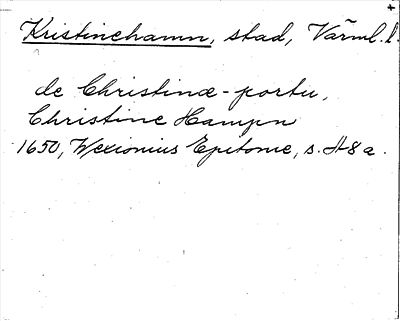 Kristinehamn, stad, Värml. l.
de Christinæ-portu,
Christine Hampn
1650, Wexionius Epitome, s. H8a.